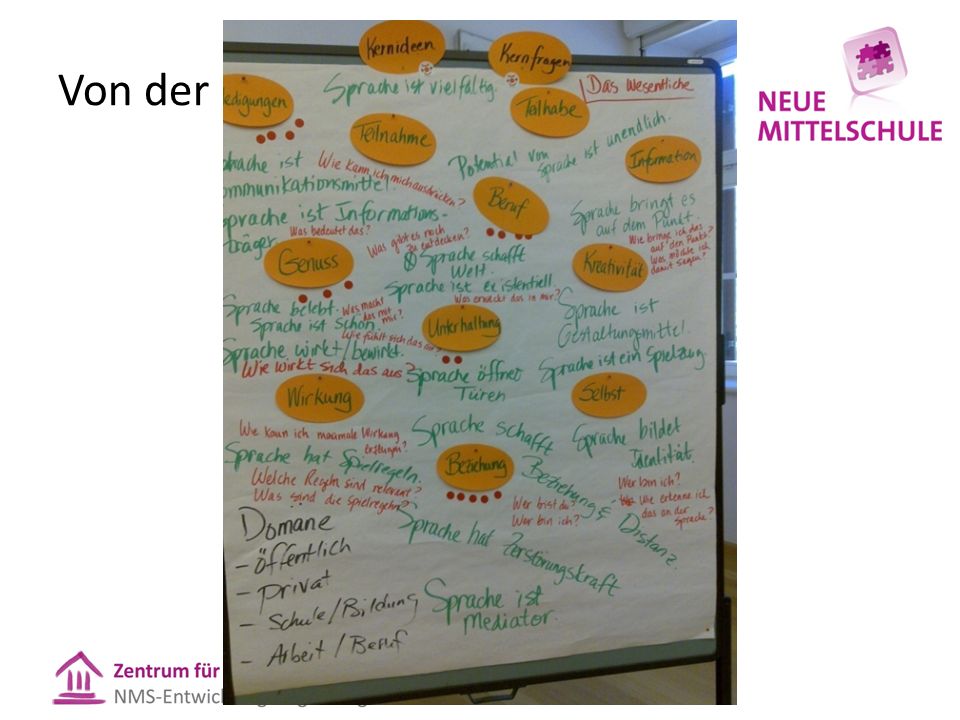 Von der
NEUE
MITTELSCHULE
Kernideen
Kernfragen
Sprache ist vielfältig.
Das Wesentliche
edigungen
Teilnahme
Teilhabe
Potential von Sprache ist unendlich.
Information
prache ist
ommunikationsmittel.
Wie kann ich mich ausdrücken?
Sprache ist Informations-
träger
Was bedeutet das?
Beruf
Sprache bringt es
auf dem Punkt.
Wie bringe ich das
auf den Punkt?
Was möchte ich
damit sagen?
Was gibt es noch
zu entdecken?
Genuss
Sprache schafft
Welt.
Kreativität
Sprache ist existentiell.
Was erweckt das in mir?
Sprache belebt.
Was macht
das mit
mir?
Sprache ist schön.
Wie fühlt sich das an?
Unterhaltung
Sprache ist
Gestaltungsmittel.
Sprache wirkt/bewirkt.
Wie wirkt sich das aus?
Sprache öffnet
Türen
Sprache ist ein Spielzeug.
Wirkung
Selbst
Wie kann ich maximale Wirkung
erzeugen?
Sprache schafft
Beziehung &
Distanz.
Sprache bildet
Identität.
Sprache hat Spielregeln.
Welche Regeln sind relevant?
Was sind die Spielregeln?
Beziehung
Wer bist du?
Wer bin ich?
Wer bin ich?
- Wie erkenne ich
das an der
Sprache?
Domäne
- öffentlich
- privat
- Schule/Bildung
- Arbeit/Beruf
Sprache hat Zerstörungskraft
Sprache ist
Mediator.
Zentrum für
NMS-Entwick